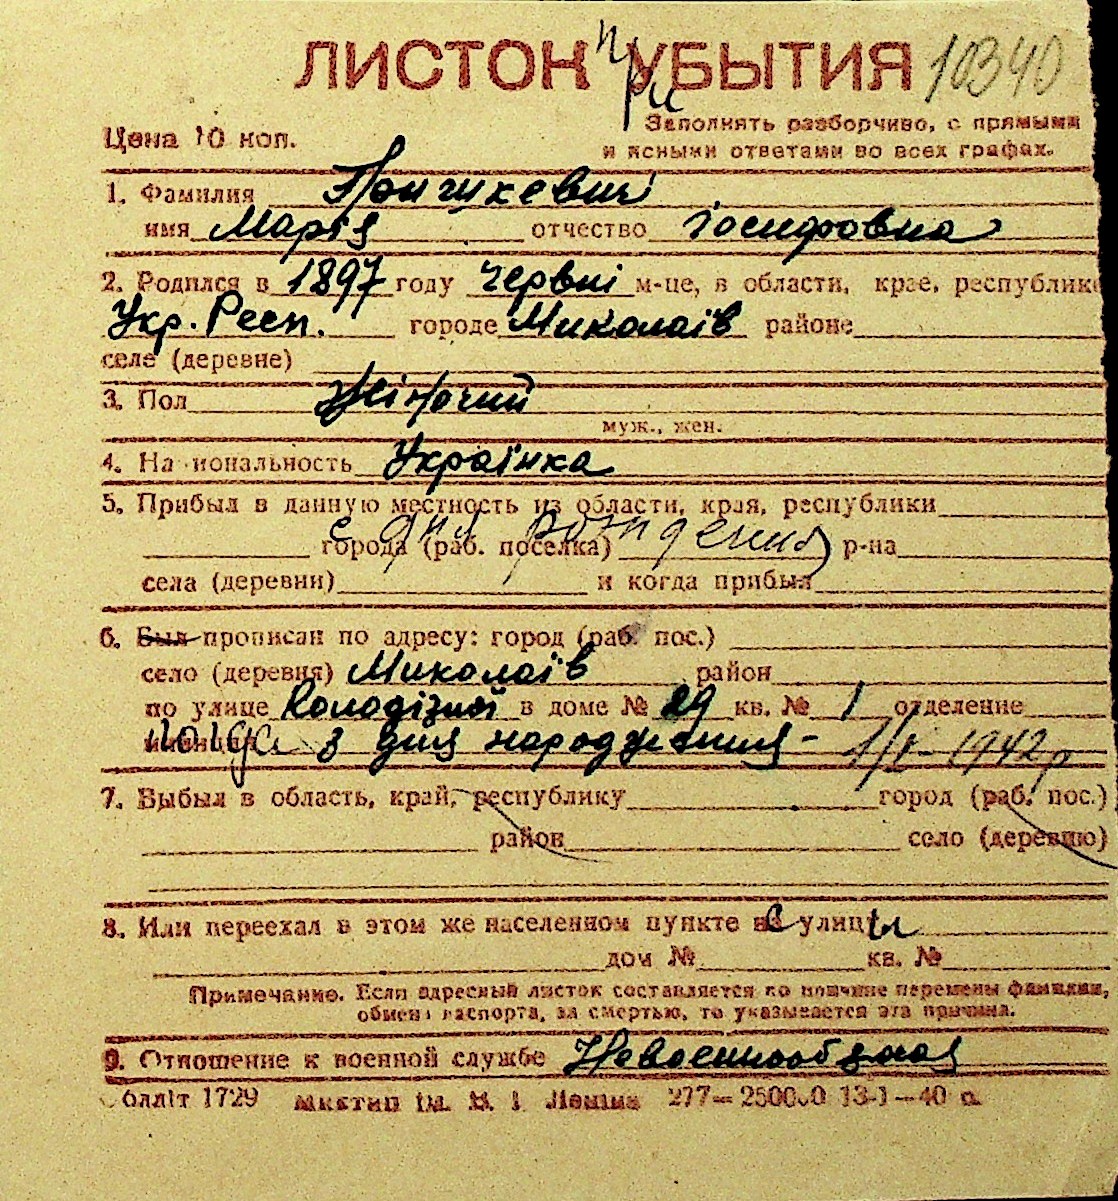 ЛИСТОК УБЫТИЯ при 10340
Цена 10 коп.
Заполнять разборчиво, с прямыми
и ясными ответами во всех графах.
1. Фамилия
имя Марія отчество Іосифовна
2. Родился в 1897 году червні м-це, в области, крае, республике
Укр. Респ. городе Миколаїв районе
селе (деревне)
3. Пол Жіночий
муж., жен.
4. Национальность Українка
5. Прибыл в данную местность из области, края, республики
с дня рождения
города (раб. поселка) р-на
села (деревни) и когда прибыл
6. Был прописан по адресу: город (раб. пос.)
село (деревня) Миколаїв район
по улице Колодізної в доме № 29 кв. № 1 отделение
милиции з дня народження - 1/I - 1942 р
7. Выбыл в область, край, республику город (раб. пос.)
район село (деревню)
8. Или переехал в этом же населенном пункте с улицы
дом № кв. №
Примечание. Если адресный листок составляется по причине перемены фамилии,
обмена паспорта, за смертью, то указывается эта причина.
9. Отношение к военной службе Невоеннообязная
облліт 1729 Миктип ім. В. І Леніна 277—250000 13-I—40 р.